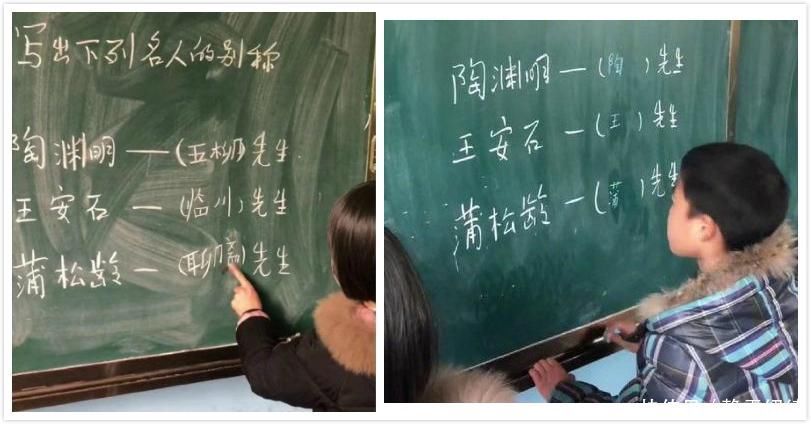 写出下列名人的别称
陶渊明—(五柳)先生
王安石—(临川)先生
蒲松龄—(聊斋)先生
陶渊明—(陶)先生
王安石—(王)先生
蒲松龄—(蒲)先生